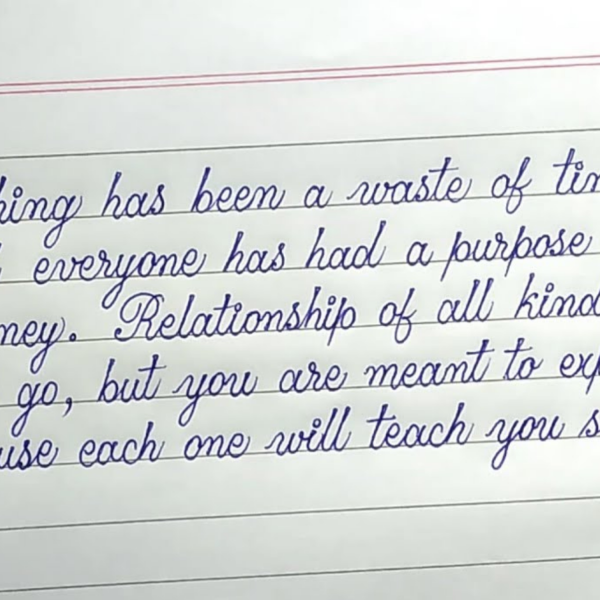 hing has been a waste of tim
everyone has had a purpose
ney. Relationship of all kind
go, but you are meant to exp
use each one will teach you s